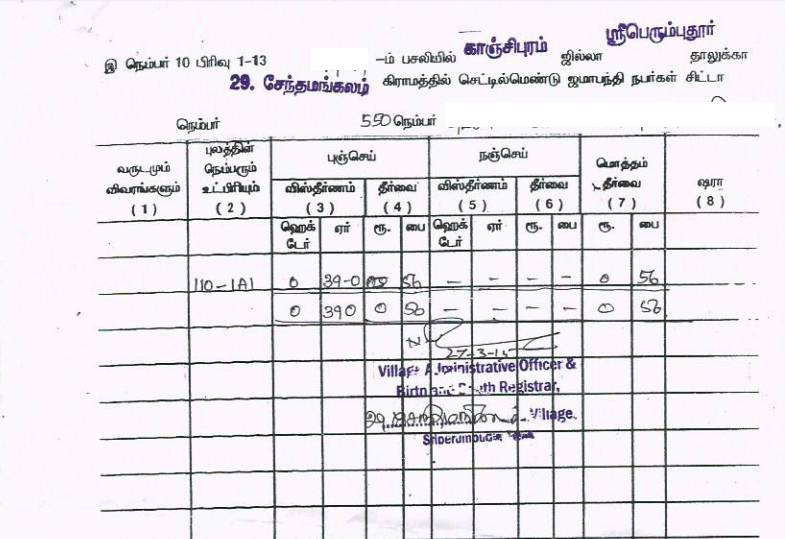 ஸ்ரீபெரும்புதூர்
இ நெம்பர் 10 பிரிவு 1-13 -ம் பசலியில் காஞ்சிபுரம் ஜில்லா தாலுக்கா
29. சேந்தமங்கலம் கிராமத்தில் செட்டில்மெண்டு ஜமாபந்தி நபர்கள் சிட்டா
நெம்பர் 550 நெம்பர்
வருடமும் விவரங்களும் (1) புலத்தின் நெம்பரும் உட்பிரியும் (2) புஞ்செய் நஞ்செய் மொத்தம் தீர்வை (7) ஷரா (8)
விஸ்தீர்ணம் (3) தீர்வை (4) விஸ்தீர்ணம் (5) தீர்வை (6)
ஹெக்டேர் ஏர் ரூ. பை ஹெக்டேர் ஏர் ரூ. பை ரூ. பை
110-1A1 0 39-0 56 – – – – 0 56
0 390 0 56 – – – – 0 56
27-3-15
Village Administrative Officer &
Birth and Death Registrar,
Village,